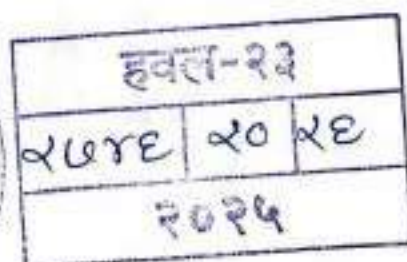 हवल-२३
२७४६ २० २६
२०२५